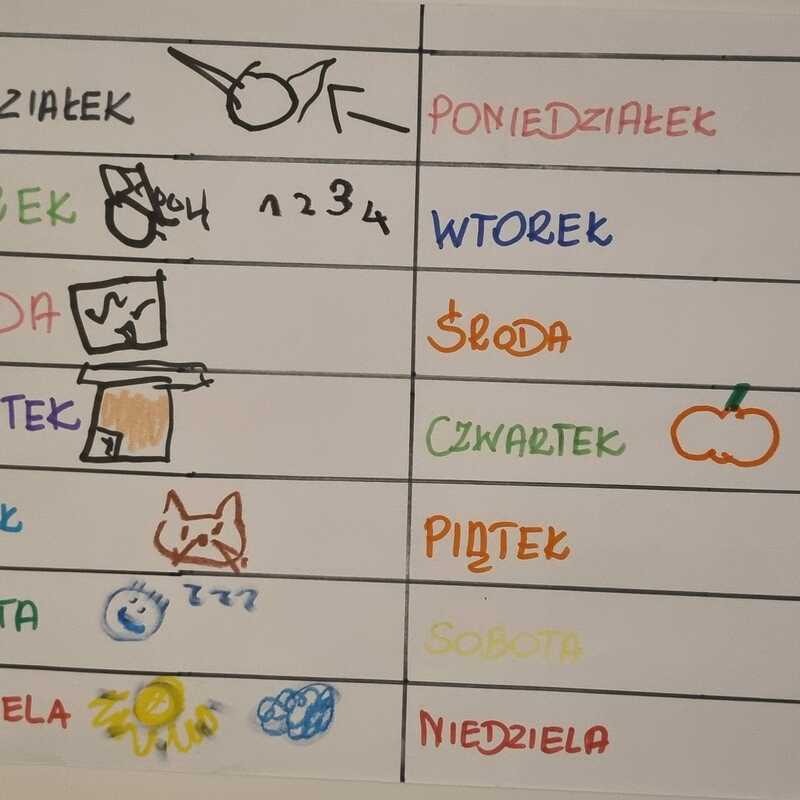 ZIAŁEK PONIEDZIAŁEK
EK 1 2 3 4 WTOREK
DA ŚRODA
TEK CZWARTEK
K PIĄTEK
TA zzz SOBOTA
ELA NIEDZIELA